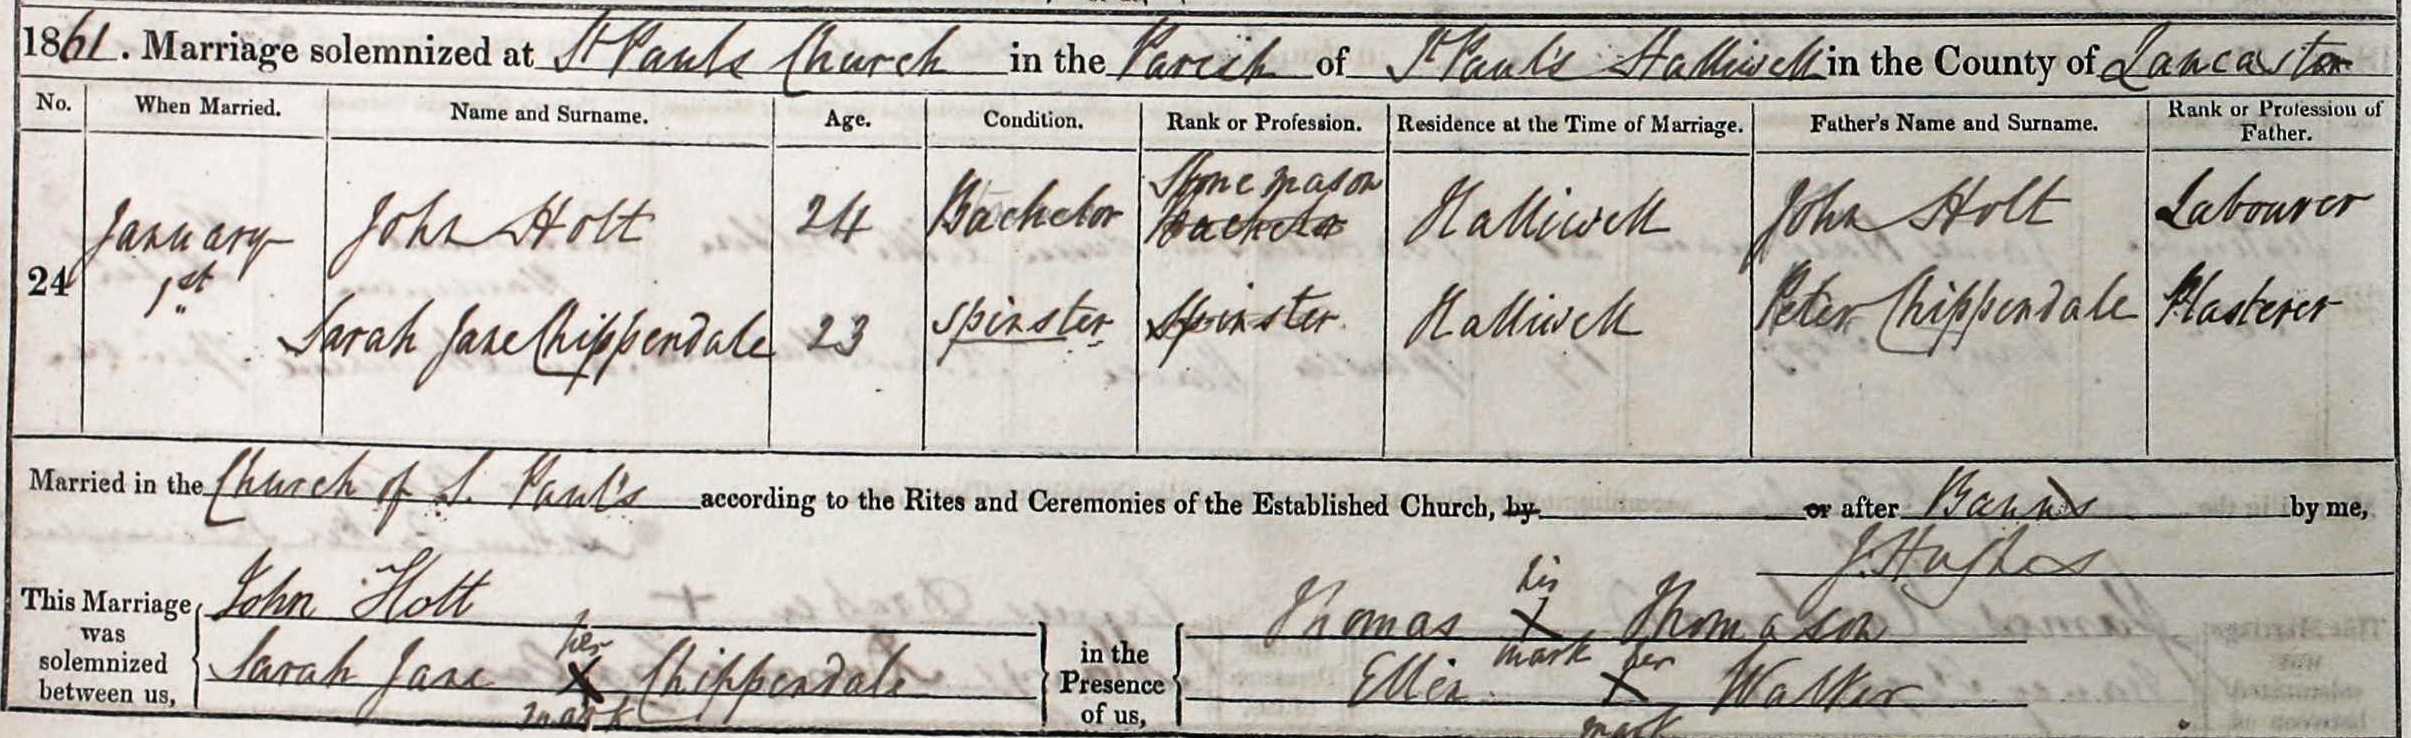 1861. Marriage solemnized at St Pauls Church in the Parish of St Paul's Halliwell in the County of Lancaster
No. When Married. Name and Surname. Age. Condition. Rank or Profession. Residence at the Time of Marriage. Father's Name and Surname. Rank or Profession of Father.
24 January 1st John Holt 24 Bachelor Stone mason Bachelor Halliwell John Holt Labourer
Sarah Jane Chippendale 23 Spinster Spinster Halliwell Peter Chippendale Plasterer
Married in the Church of S. Paul's according to the Rites and Ceremonies of the Established Church, by or after Banns by me,
J. Hughes
This Marriage was solemnized between us,
John Holt
Sarah Jane her X mark Chippendale
in the Presence of us,
Thomas his X mark Thomason
Ellen her X mark Walker